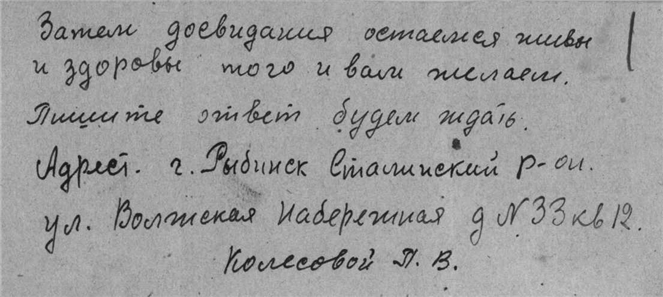 Затем досвидания остаемся живы
и здоровы того и вам желаем.
Пишите ответ будем ждать.
Адрест. г. Рыбинск Сталинский р-он.
ул. Волжская Набережная д N 33 кв 12.
Колесовой П. В.